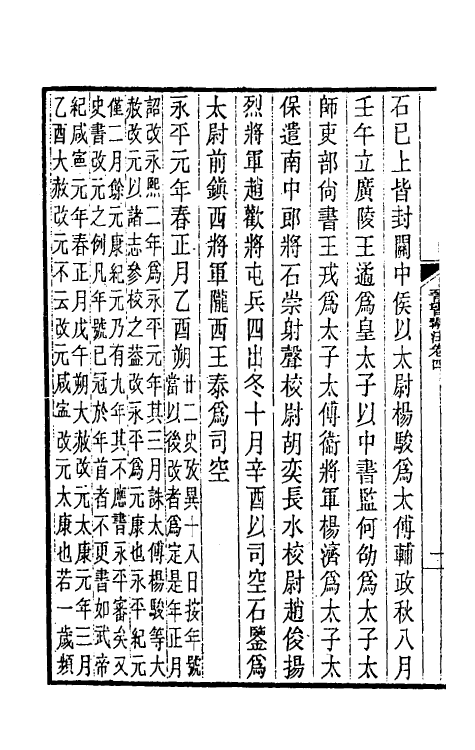 晉書斠注卷四
石已上皆封關中侯以太尉楊駿爲太傅輔政秋八月
壬午立廣陵王遹爲皇太子以中書監何劭爲太子太
師吏部尙書王戎爲太子太傅衞將軍楊濟爲太子太
保遣南中郎將石崇射聲校尉胡奕長水校尉趙俊揚
烈將軍趙歡將屯兵四出冬十月辛酉以司空石鑒爲
太尉前鎭西將軍隴西王泰爲司空
永平元年春正月乙酉朔
廿二史攷異十八日按年號
當以後改者爲定是年正月
詔改永熙二年爲永平元年其三月誅太傅楊駿等大
赦改元以諸志參校之葢改永平爲元康也永平紀元
僅二月餘元康紀元乃有九年其不應書永平審矣又
史書改元之例凡年號已冠於年首者不更書如武帝
紀咸寧元年春正月戊午朔大赦改元太康元年三月
乙酉大赦改元不云改元咸寧改元太康也若一歲頻